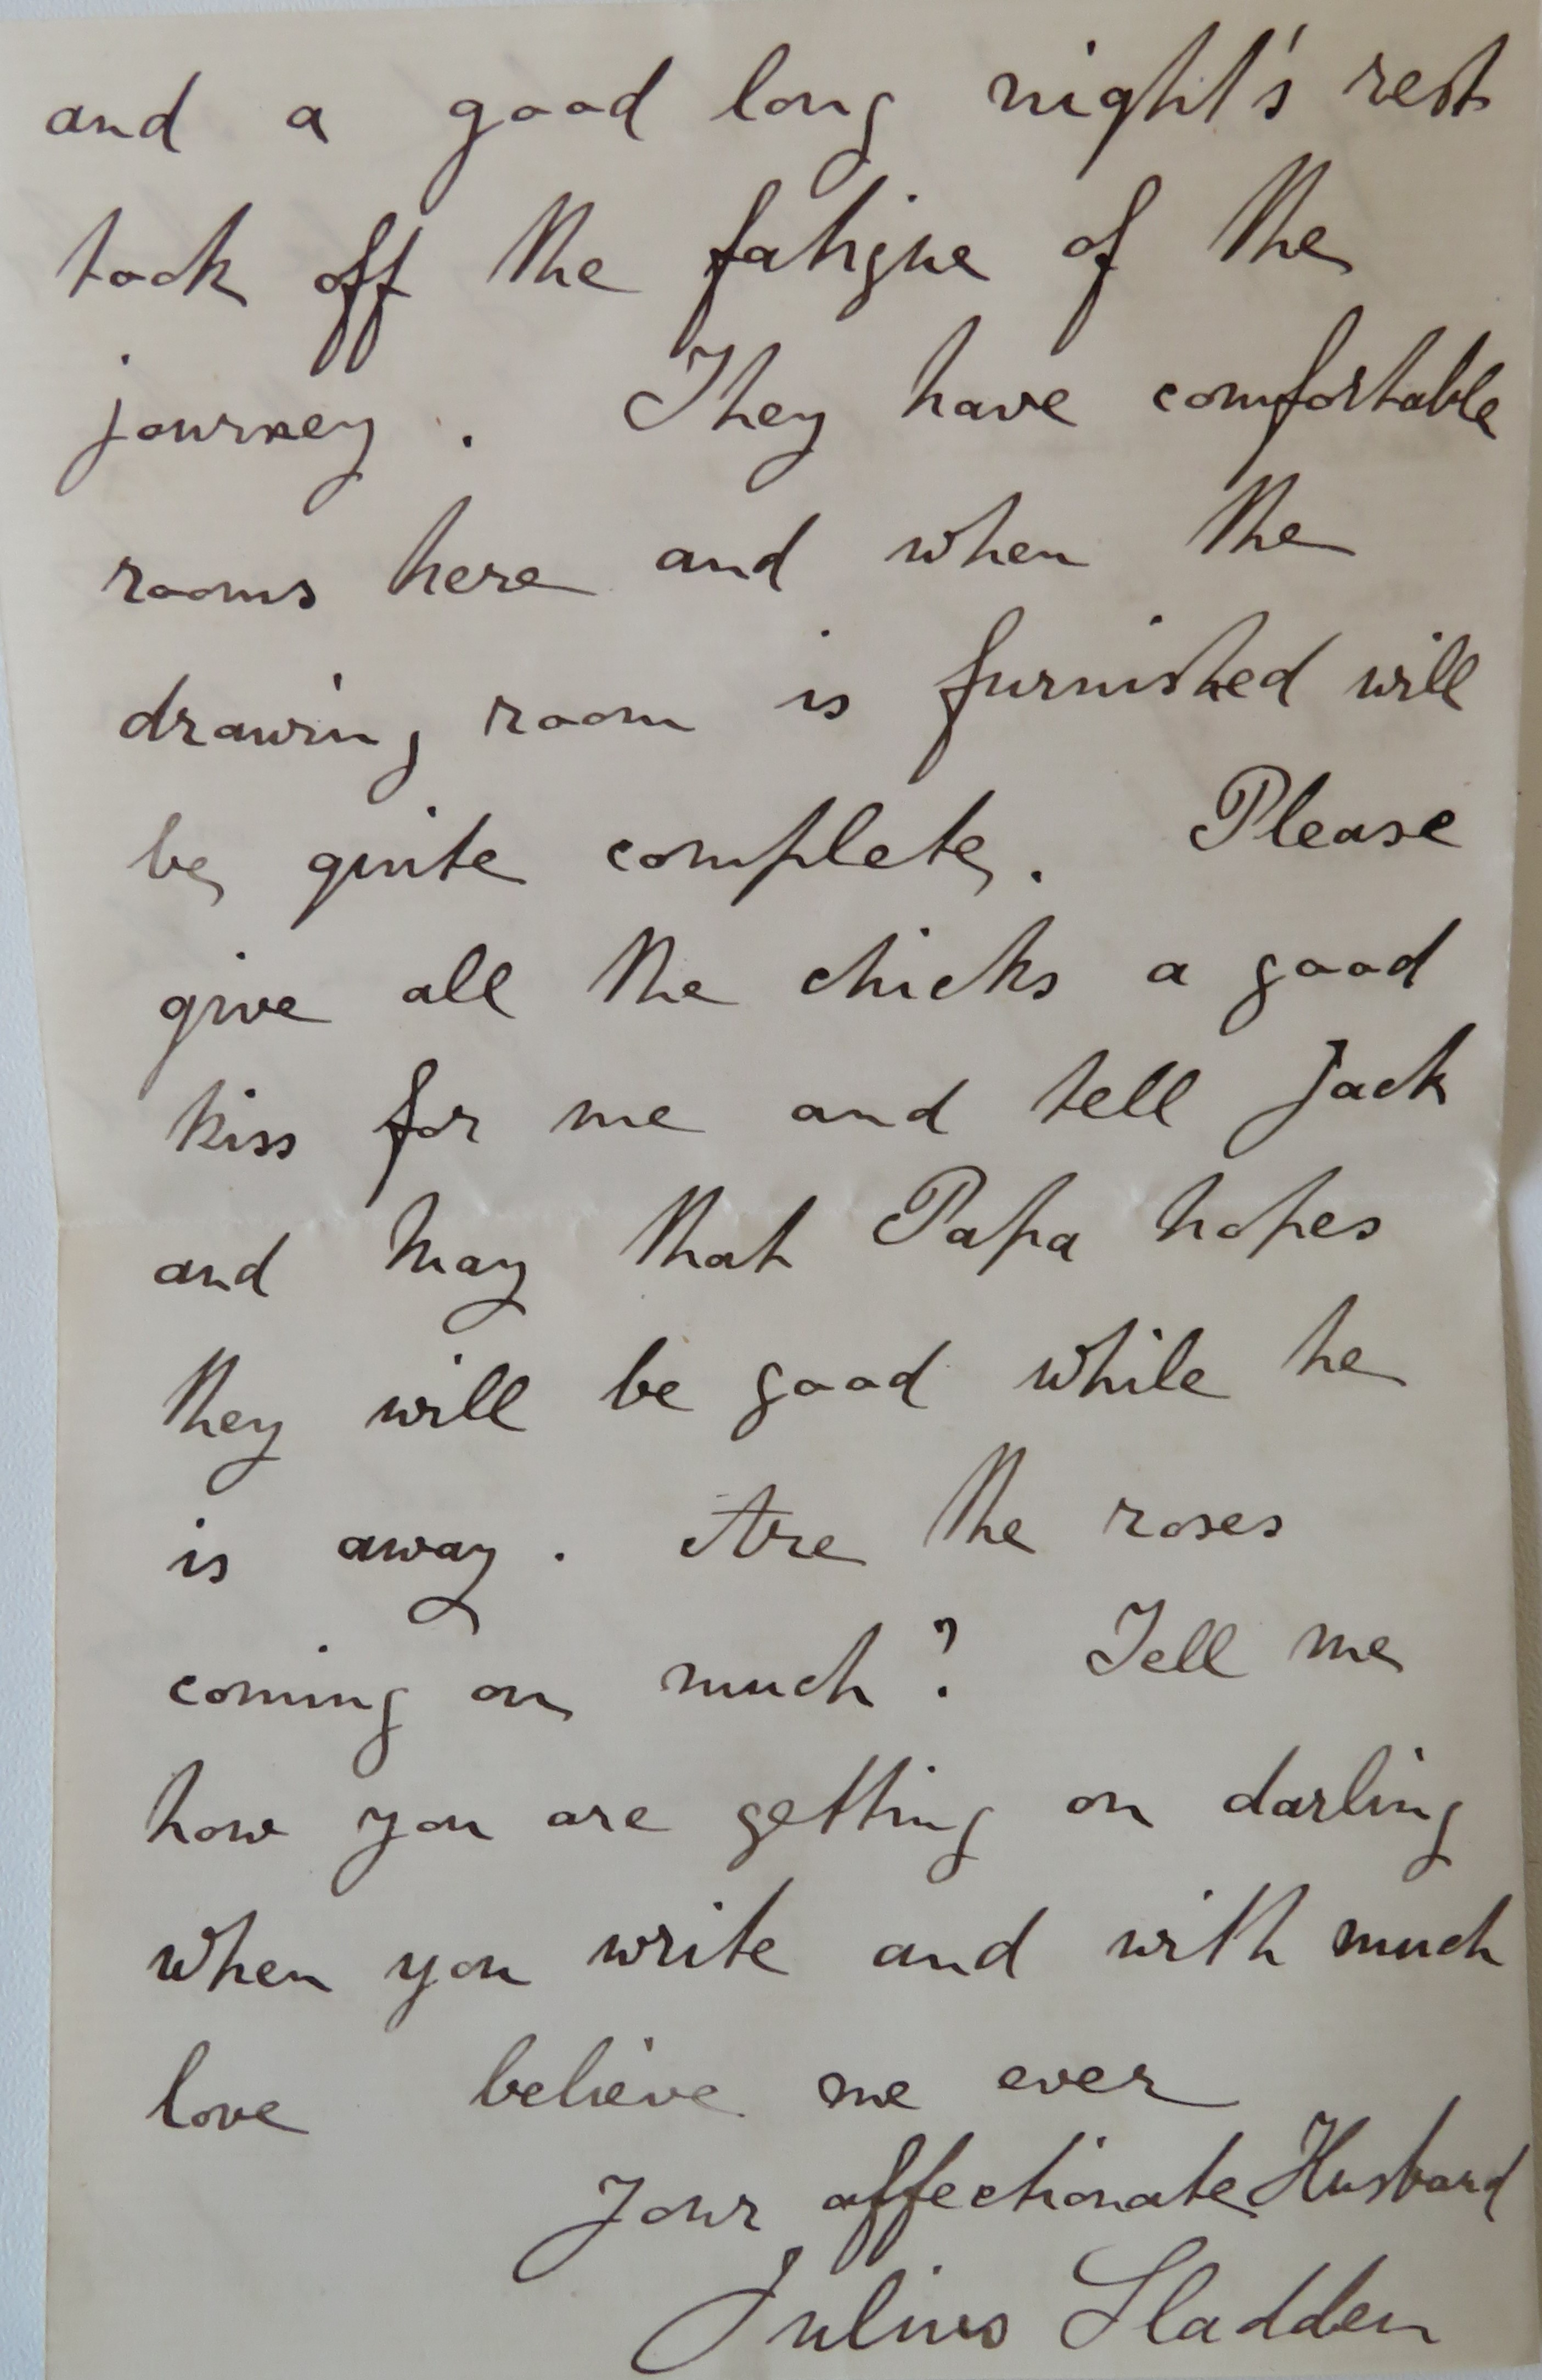 and a good long night's rest
took off the fatigue of the
journey. They have comfortable
rooms here and when the
drawing room is furnished will
be quite complete. Please
give all the chicks a good
kiss for me and tell Jack
and May that Papa hopes
they will be good while he
is away. Are the roses
coming on much? Tell me
how you are getting on darling
when you write and with much
love believe me ever
Your affectionate Husband
Julius Sladden